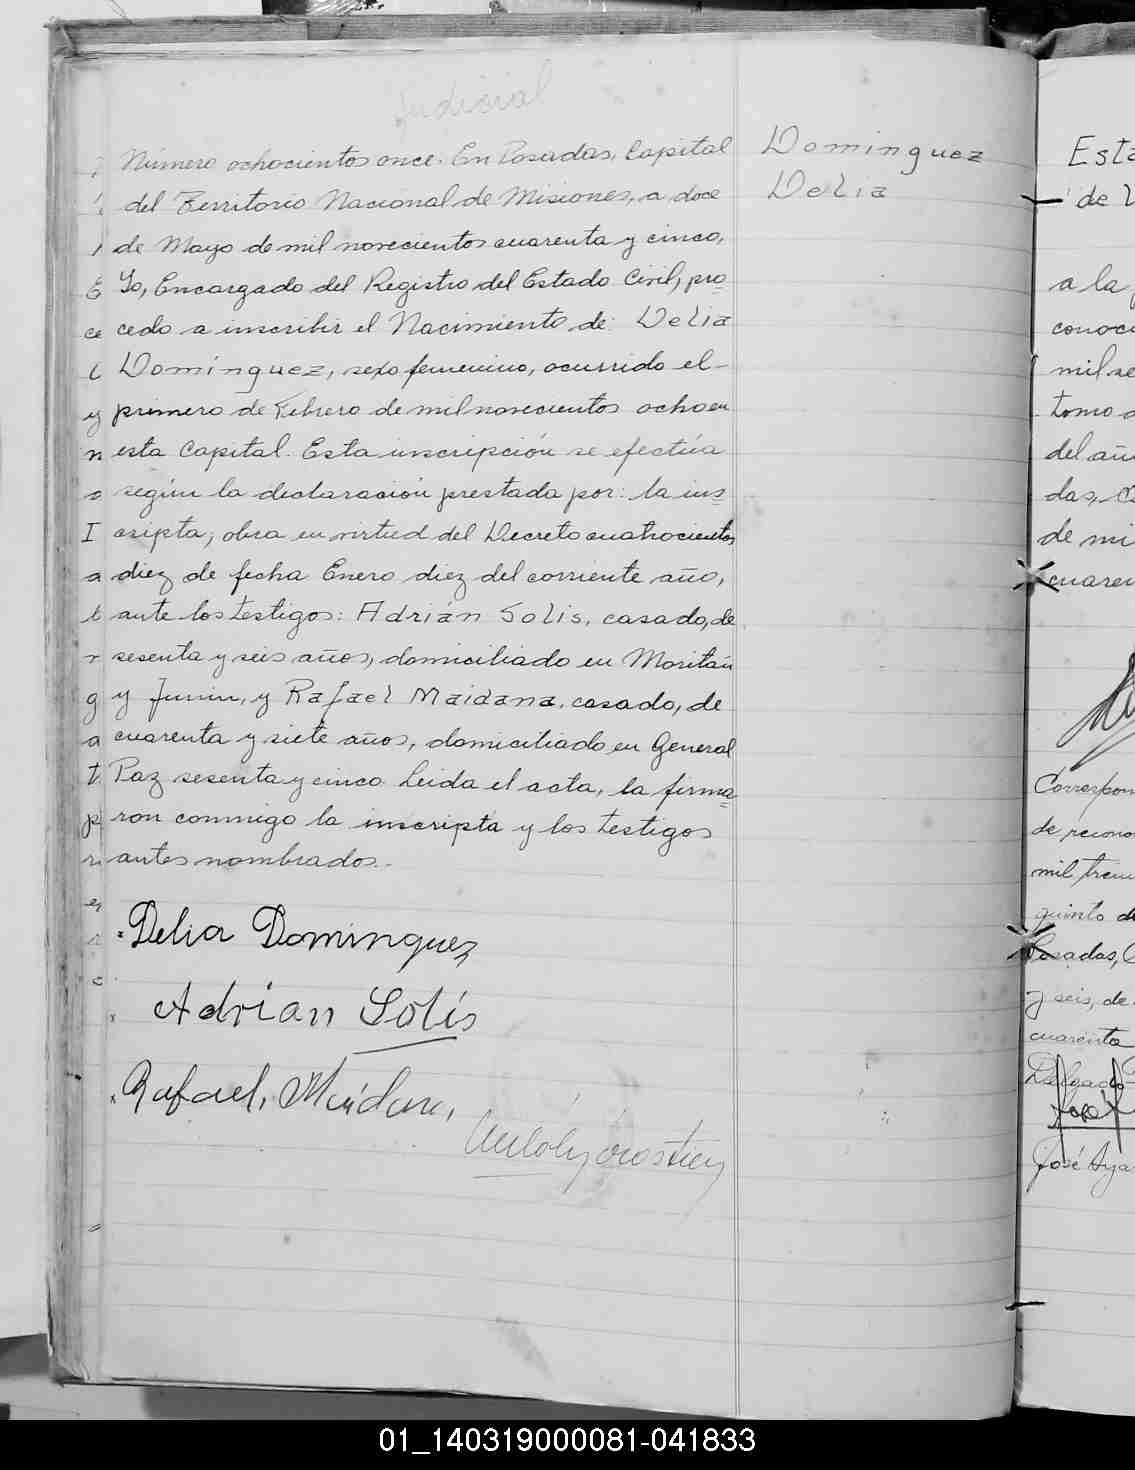 Judicial
Número ochocientos once. En Posadas, Capital
del Territorio Nacional de Misiones, a doce
de Mayo de mil novecientos cuarenta y cinco,
Yo, Encargado del Registro del Estado Civil, pro=
cedo a inscribir el Nacimiento de: Delia
Domínguez, sexo femenino, ocurrido el-
primero de Febrero de mil novecientos ocho en
esta Capital. Esta inscripción se efectúa
según la declaración prestada por: la ins=
cripta; obra en virtud del Decreto cuatrocientos
diez de fecha Enero diez del corriente año,
ante los testigos: Adrián Solis, casado, de
sesenta y seis años, domiciliado en Moritán
y Junin, y Rafael Maidana, casado, de
cuarenta y siete años, domiciliado en General
Paz sesenta y cinco. Leida el acta, la firma=
ron conmigo la inscripta y los testigos
antes nombrados.-
Delia Dominguez
Adrian Solís
Rafael, Maidana,
Dominguez
Delia
Esta
de
a la
conoci
mil se
tomo
del añ
das,
de mi
cuaren
Correspon
de recono
mil trein
quinto de
Posadas,
y seis, de
cuarenta
Delgado
José Aya
01_140319000081-041833